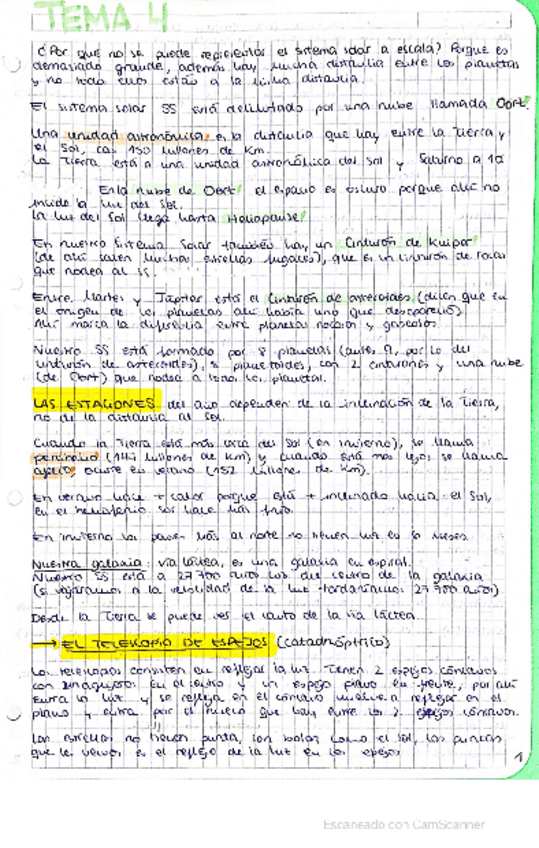 TEMA 4
¿Por qué no se puede representar el sistema solar a escala? Porque es
demasiado grande, además hay mucha distancia entre los planetas
y no todos ellos están a la misma distancia.
El sistema solar SS está delimitado por una nube llamada Oort.
Una unidad astronómica es la distancia que hay entre la Tierra y
el Sol, casi 150 millones de Km.
La Tierra está a una unidad astronómica del Sol y Saturno a 10
En la nube de Oort el espacio es oscuro porque allí no
incide la luz del Sol.
La luz del Sol llega hasta Heliopause
En nuestro Sistema Solar también hay un Cinturón de Kuiper
(de ahí salen muchas estrellas fugaces), que es un cinturón de rocas
que rodea al SS.
Entre Marte y Júpiter está el Cinturón de asteroides (dicen que en
el origen de los planetas ahí había uno que desapareció)
Ahí marca la diferencia entre planetas rocosos y gaseosos.
Nuestro SS está formado por 8 planetas (antes 9, por lo del
cinturón de asteroides), 5 planetoides, con 2 cinturones y una nube
(de Oort) que rodea a todos los planetas.
LAS ESTACIONES del año dependen de la inclinación de la Tierra,
no de la distancia al Sol.
Cuando la Tierra está más cerca del Sol (en invierno), se llama
perihelio (147 millones de km) y cuando está más lejos, se llama
afelio, ocurre en verano (152 millones de km).
En verano hace + calor porque está + inclinado hacia el Sol,
en el hemisferio sur hace más frío.
En invierno los países más al norte no tienen luz en 6 meses.
Nuestra galaxia: vía láctea, es una galaxia en espiral.
Nuestro SS está a 27 700 años luz del centro de la galaxia
(si viajáramos a la velocidad de la luz tardaríamos 27 700 años)
Desde la Tierra se puede ver el canto de la vía láctea.
→ EL TELESCOPIO DE ESPEJOS (catadrióptrico)
Los telescopios consisten en reflejar la luz. Tienen 2 espejos cóncavos
con un agujero en el centro y un espejo plano en frente, por ahí
entra la luz y se refleja en el cóncavo vuelve a reflejar en el
plano y entra por el hueco que hay entre los 2 espejos cóncavos.
Las estrellas no tienen punta, son bolas como el sol, las puntas
que le vemos es el reflejo de la luz en los espejos
1
Escaneado con CamScanner